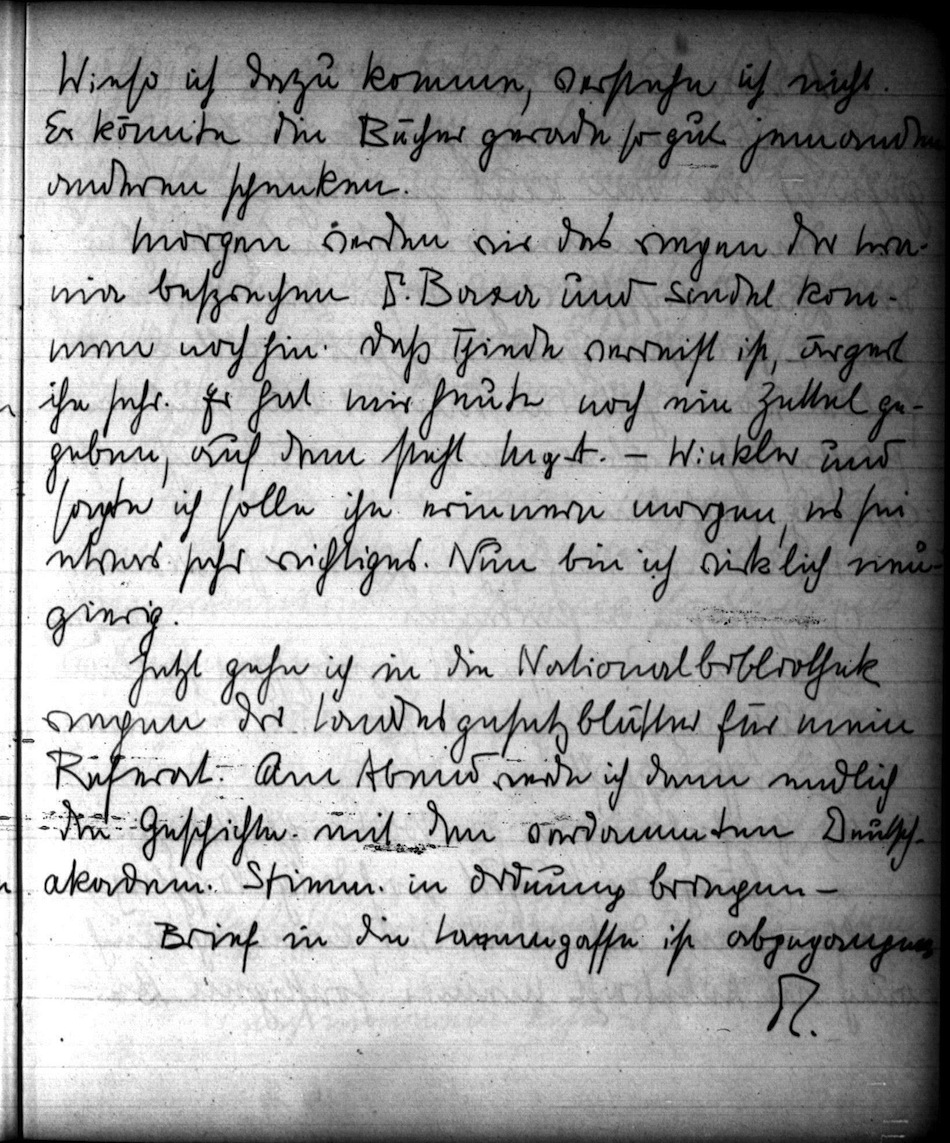 Wieso ich dazu komme, verstehe ich nicht.
Er könnte die Bücher gerade so gut jemanden
anderen schenken.
Morgen werden wir das wegen der Ura-
nia besprechen D. Baxa und Sindel kom-
men noch hin. Daß Thiede verreist ist, ärgert
ihn sehr. Er hat mir heute noch ein Zettel ge-
geben, auf dem steht – Winkler und
sagte ich solle ihn erinnern morgen, es sei
etwas sehr wichtiges. Nun bin ich wirklich neu-
gierig.
Jetzt gehe ich in die Nationalbibliothek
wegen der Landesgesetzblätter für mein
Referat. Am Abend werde ich dann endlich
die Geschichte mit den verdammten Deutsch-
akadem. Stimm. in Ordnung bringen –
Brief in die gasse ist abgegangen
R.